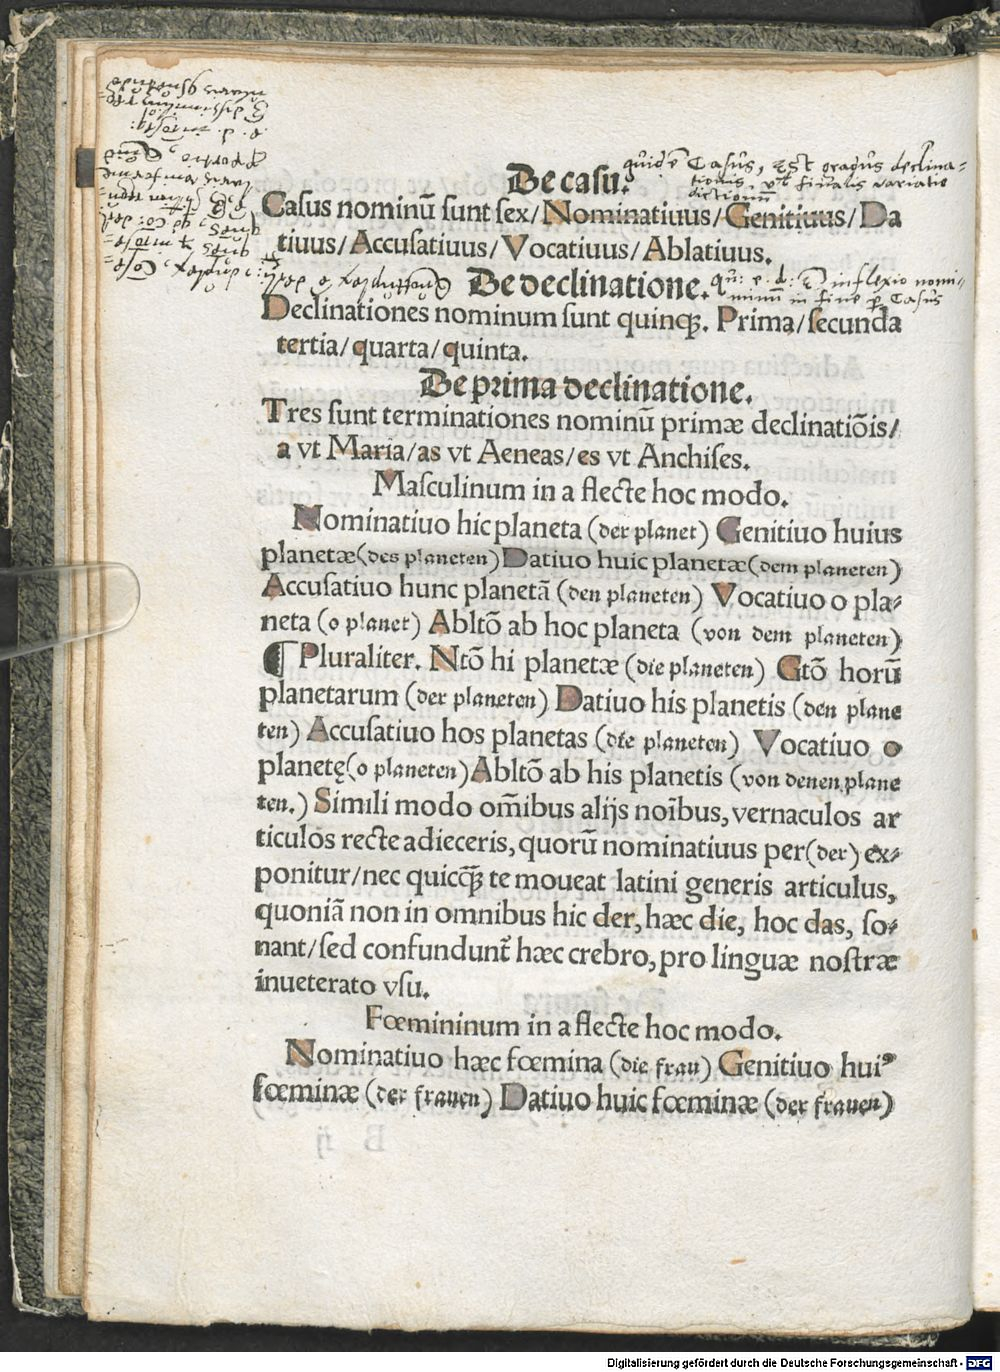 De casu.
quid ē Casus, Est gradus declina-
tionis, vel finalis variatio
dictionū
Casus nominū sunt sex/ Nominatiuus/ Genitiuus/ Da
tiuus/ Accusatiuus/ Vocatiuus/ Ablatiuus.
De declinatione.
ē inflexio nomi-
num in fine per Casus
Declinationes nominum sunt quinqꝫ. Prima/ secunda
tertia/ quarta/ quinta.
De prima declinatione.
Tres sunt terminationes nominū primæ declinatiõis/
a vt Maria/ as vt Aeneas/ es vt Anchises.
Masculinum in a flecte hoc modo.
Nominatiuo hic planeta (der planet) Genitiuo huius
planetæ (des planeten) Datiuo huic planetæ (dem planeten)
Accusatiuo hunc planetã (den planeten) Vocatiuo o pla⸗
neta (o planet) Abltõ ab hoc planeta (von dem planeten)
¶ Pluraliter. Ntõ hi planetæ (die planeten) Gtõ horũ
planetarum (der planeten) Datiuo his planetis (den plane
ten) Accusatiuo hos planetas (die planeten) Vocatiuo o
planetę (o planeten) Abltõ ab his planetis (von denen plane
ten.) Simili modo om̃ibus alijs noĩbus, vernaculos ar
ticulos recte adieceris, quorũ nominatiuus per (der) ex⸗
ponitur/ nec quicq̃ꝫ te moueat latini generis articulus,
quoniã non in omnibus hic der, hæc die, hoc das, so⸗
nant/ sed confundunt̃ hæc crebro, pro linguæ nostræ
inueterato vsu.
Fœmininum in a flecte hoc modo.
Nominatiuo hæc fœmina (die frau) Genitiuo huiꝰ
fœminæ (der frauen) Datiuo huic fœminæ (der frauen)
Digitalisierung gefördert durch die Deutsche Forschungsgemeinschaft - DFG